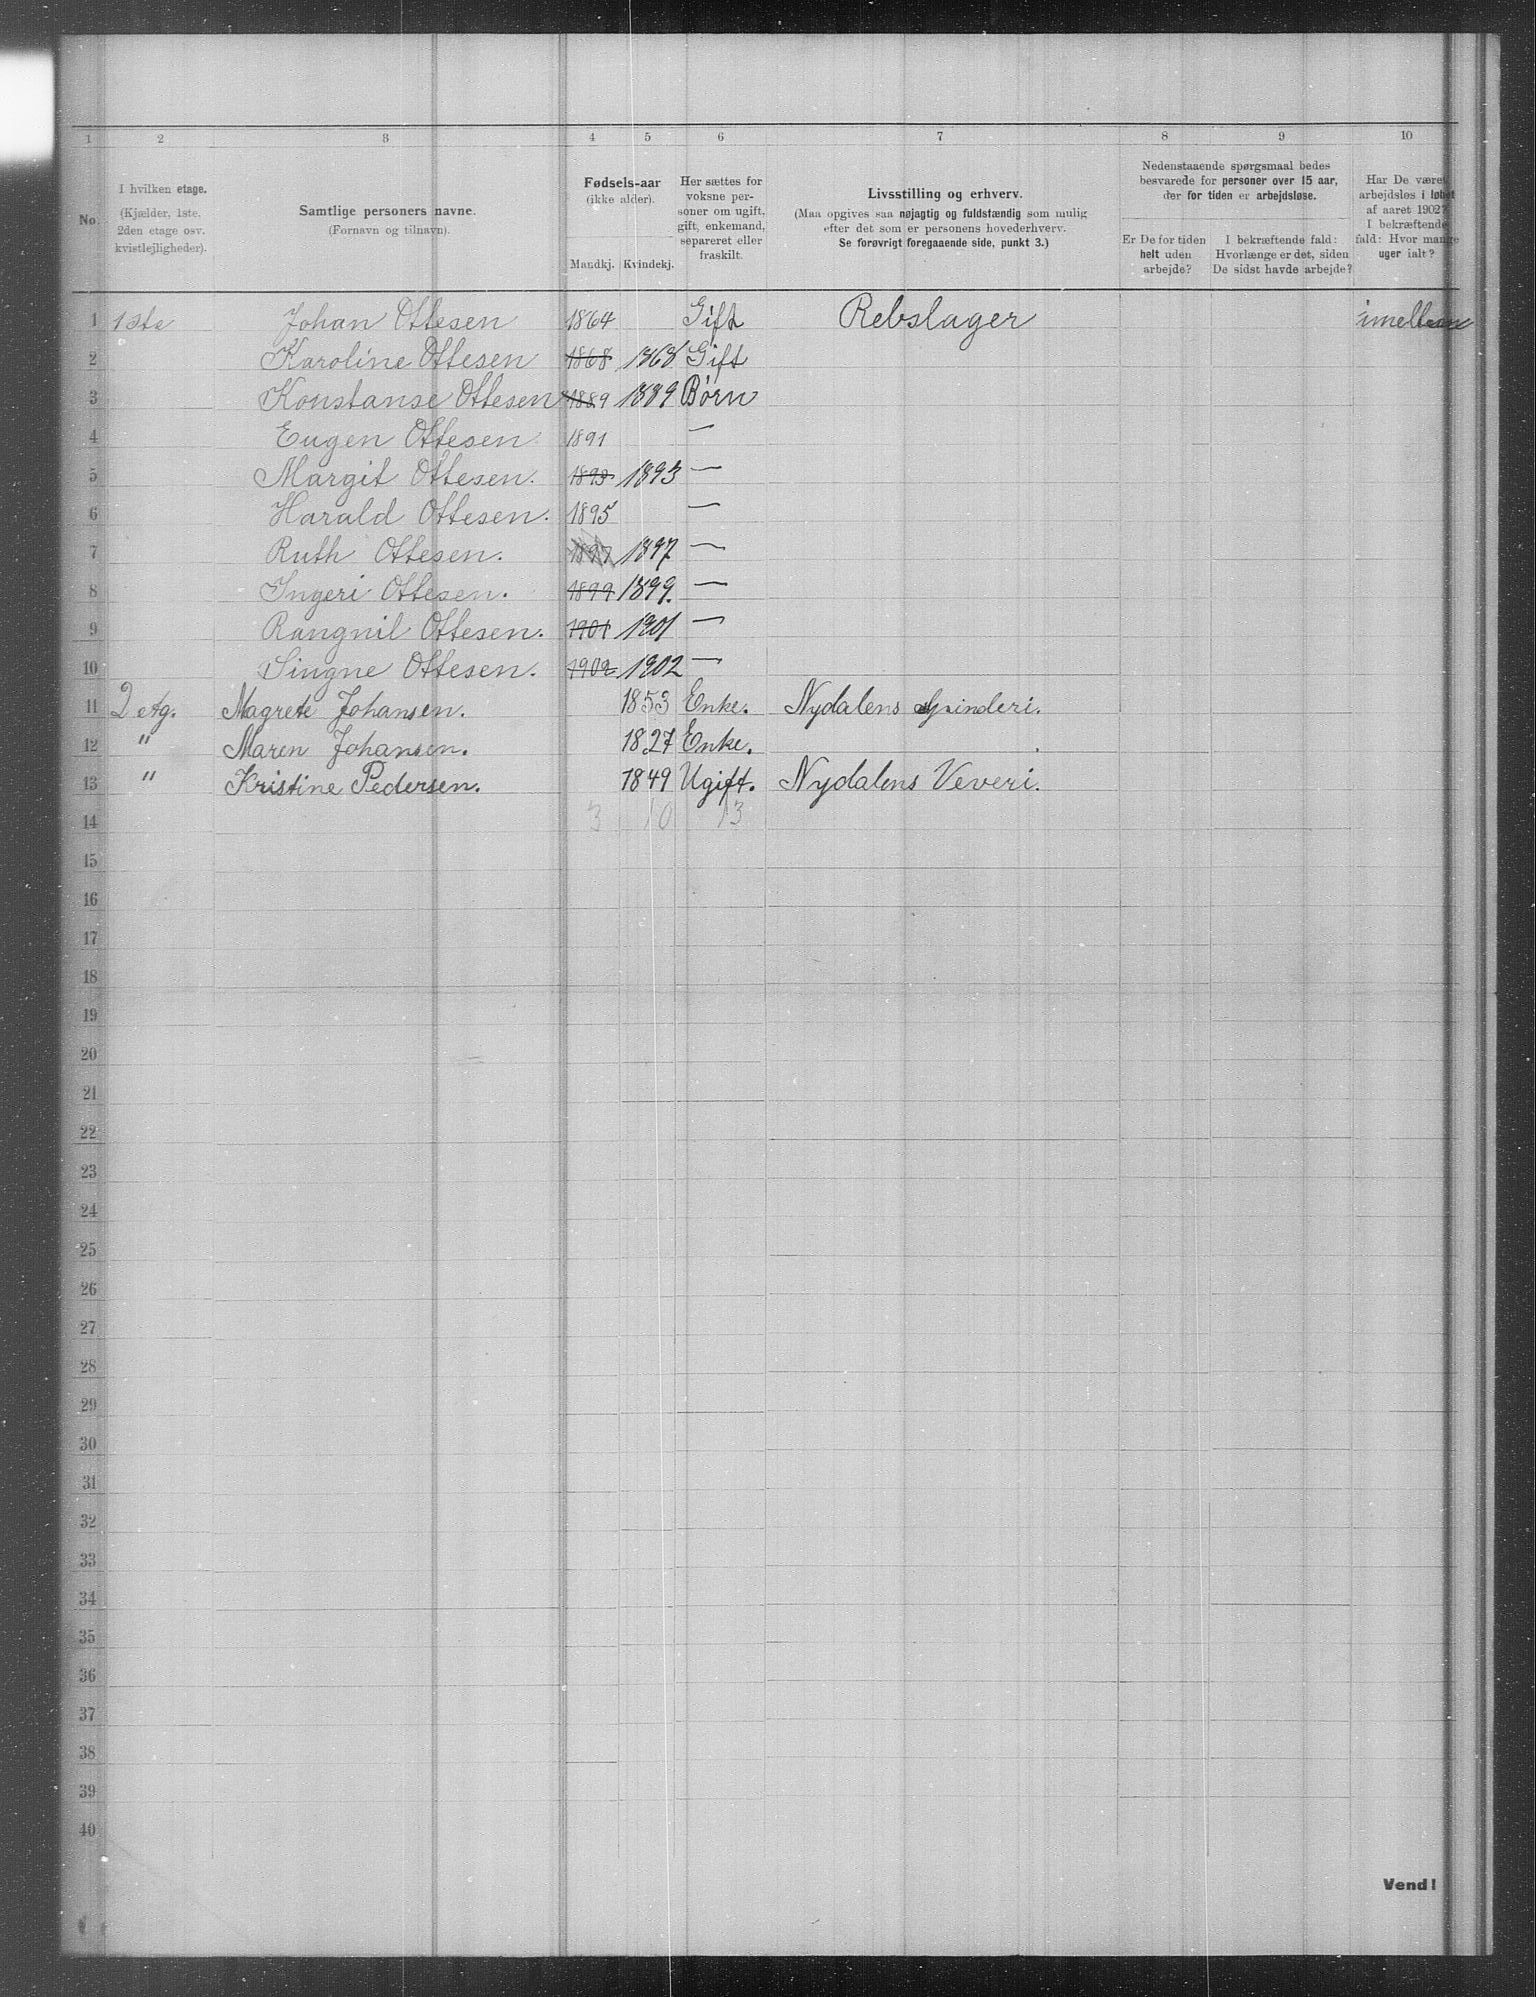 1 2 3 4 5 6 7 8 9 10
No.
I hvilken etage.
(Kjælder, 1ste.
2den etage osv.
kvistlejligheder).
Samtlige personers navne.
(Fornavn og tilnavn).
Fødsels-aar
(ikke alder).
Mandkj. Kvindekj.
Her sættes for
voksne per-
soner om ugift,
gift, enkemand,
separeret eller
fraskilt.
Livsstilling og erhverv.
(Maa opgives saa nøjagtig og fuldstændig som mulig
efter det som er personens hovederhverv.
Se forøvrigt foregaaende side, punkt 3.)
Nedenstaaende spørgsmaal bedes
besvarede for personer over 15 aar,
der for tiden er arbejdsløse.
Er De for tiden
helt uden
arbejde?
I bekræftende fald:
Hvorlænge er det, siden
De sidst havde arbejde?
Har De været
arbejdsløs i løbet
af aaret 1902?
I bekræftende
fald: Hvor mange
uger ialt?
1 1ste Johan Ottesen 1864 Gift Rebslager
2 Karoline Ottesen 1868 1868 Gift
3 Konstanse Ottesen 1889 1889 Børn
4 Eugen Ottesen 1891 —
5 Margit Ottesen. 1893 1893 —
6 Harald Ottesen. 1895 —
7 Ruth Ottesen. 1897 1897 —
8 Ingeri Ottesen. 1899 1899. —
9 Rangnil Ottesen. 1901 1901 —
10 Singne Ottesen. 1902 1902 —
11 2 etg. Magrete Johansen. 1853 Enke. Nydalens Spinderi.
12 " Maren Johansen. 1827 Enke.
13 " Kristine Pedersen. 1849 Ugift. Nydalens Veveri.
14 3 10 13
15
16
17
18
19
20
21
22
23
24
25
26
27
28
29
30
31
32
33
34
35
36
37
38
39
40
Vend!